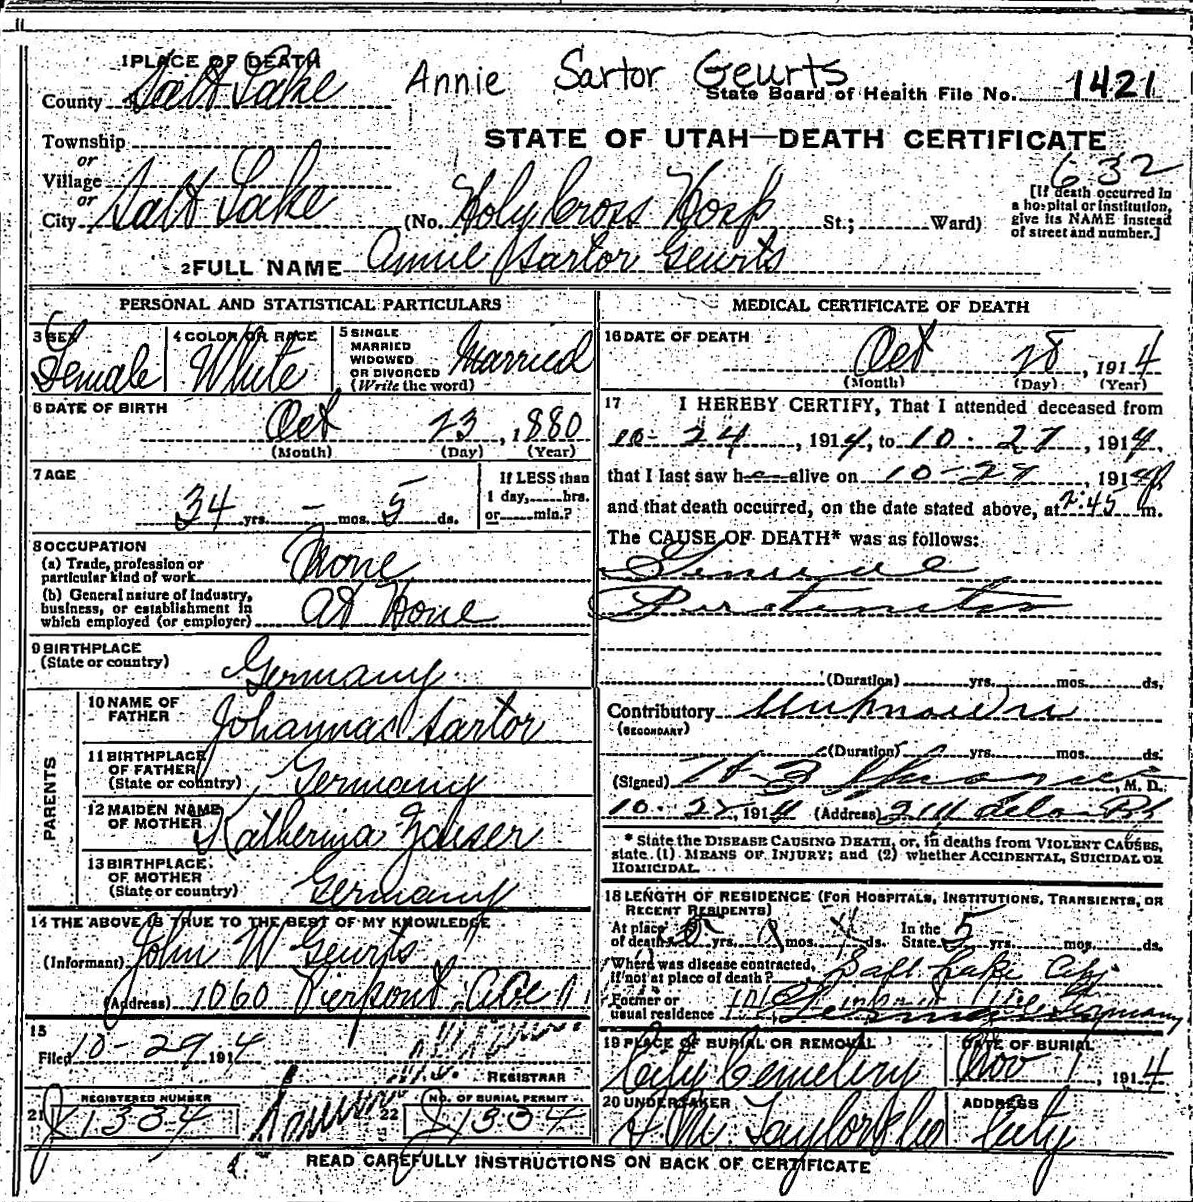 1 PLACE OF DEATH
Annie Sartor Geurts
County Salt Lake
State Board of Health File No. 1421
Township
STATE OF UTAH—DEATH CERTIFICATE
or
Village
632
or
City Salt Lake (No. Holy Cross Hosp St.; Ward)
[If death occurred in
a hospital or institution,
give its NAME instead
of street and number.]
2 FULL NAME Annie Sartor Geurts
PERSONAL AND STATISTICAL PARTICULARS
3 SEX Female
4 COLOR OR RACE White
5 SINGLE
MARRIED
WIDOWED
OR DIVORCED
(Write the word) Married
6 DATE OF BIRTH
Oct 23, 1880
(Month) (Day) (Year)
7 AGE
34 yrs. – mos. 5 ds.
If LESS than
1 day, hrs.
or min.?
8 OCCUPATION
(a) Trade, profession or
particular kind of work None
(b) General nature of industry,
business, or establishment in
which employed (or employer) At Home
9 BIRTHPLACE
(State or country) Germany
PARENTS
10 NAME OF
FATHER Johannas Sartor
11 BIRTHPLACE
OF FATHER
(State or country) Germany
12 MAIDEN NAME
OF MOTHER Katherina
13 BIRTHPLACE
OF MOTHER
(State or country) Germany
14 THE ABOVE IS TRUE TO THE BEST OF MY KNOWLEDGE
(Informant) John W Geurts
(Address) 1060 Pierpont Ave
15
Filed 10-29 1914
REGISTRAR
REGISTERED NUMBER
21 J1334
NO. OF BURIAL PERMIT
22 J1334
MEDICAL CERTIFICATE OF DEATH
16 DATE OF DEATH
Oct 28, 1914
(Month) (Day) (Year)
17 I HEREBY CERTIFY, That I attended deceased from
10-24, 1914, to 10-27, 1914,
that I last saw h alive on 10-27, 1914,
and that death occurred, on the date stated above, at 2:45 m.
The CAUSE OF DEATH* was as follows:
General
Peritonitis
(Duration) yrs. mos. ds.
Contributory Unknown
(SECONDARY)
(Duration) yrs. mos. ds.
(Signed) M. D.
1914 (Address)
* State the DISEASE CAUSING DEATH, or, in deaths from VIOLENT CAUSES,
state (1) MEANS OF INJURY; and (2) whether ACCIDENTAL, SUICIDAL OR
HOMICIDAL.
18 LENGTH OF RESIDENCE (FOR HOSPITALS, INSTITUTIONS, TRANSIENTS, OR
RECENT RESIDENTS)
At place
of death yrs. mos. ds.
In the
State 5 yrs. mos. ds.
Where was disease contracted,
if not at place of death? Salt Lake City
Former or
usual residence Germany
19 PLACE OF BURIAL OR REMOVAL
City Cemetery
DATE OF BURIAL
Nov 1, 1914
20 UNDERTAKER
Taylor & Co
ADDRESS
City
READ CAREFULLY INSTRUCTIONS ON BACK OF CERTIFICATE